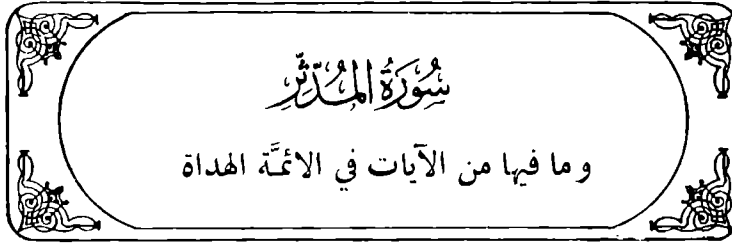 سُورَةُ الْمُدَّثِّرِ
و ما فيها من الآيات في الائمَّة الهداة